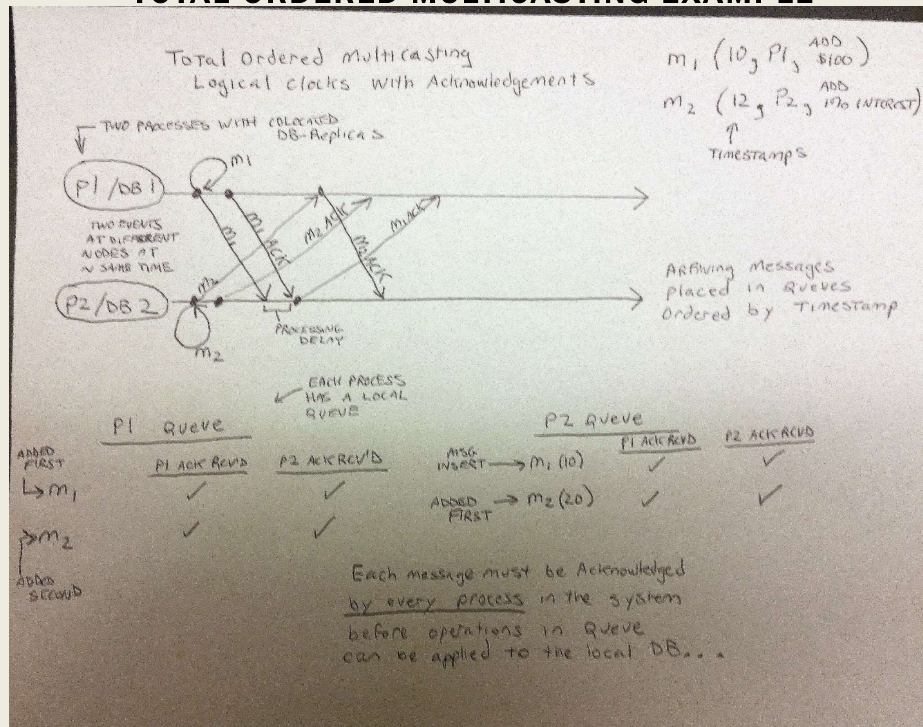 TOTAL ORDERED MULTICASTING EXAMPLE
Total Ordered Multicasting
Logical Clocks with Acknowledgements
m1 (10, P1, ADD $100)
m2 (12, P2, ADD 1% INTEREST)
TIMESTAMPS
TWO PROCESSES WITH COLOCATED
DB-Replicas
m1
P1/DB1
TWO EVENTS
AT DIFFERENT
NODES AT
~ SAME TIME
m1
m1 ACK
m2 ACK
m1 ACK
m2 ACK
m2
P2/DB2
m2
PROCESSING
DELAY
Arriving Messages
placed in Queues
Ordered by Timestamp
EACH PROCESS
HAS A LOCAL
QUEUE
P1 Queue
P1 ACK RCV'D P2 ACK RCV'D
ADDED
FIRST
m1 ✓ ✓
m2 ✓ ✓
ADDED
SECOND
P2 Queue
P1 ACK RCVD P2 ACK RCVD
MSG
INSERT → m1 (10) ✓ ✓
ADDED
FIRST → m2 (20) ✓ ✓
Each message must be Acknowledged
by every process in the system
before operations in Queue
can be applied to the local DB...